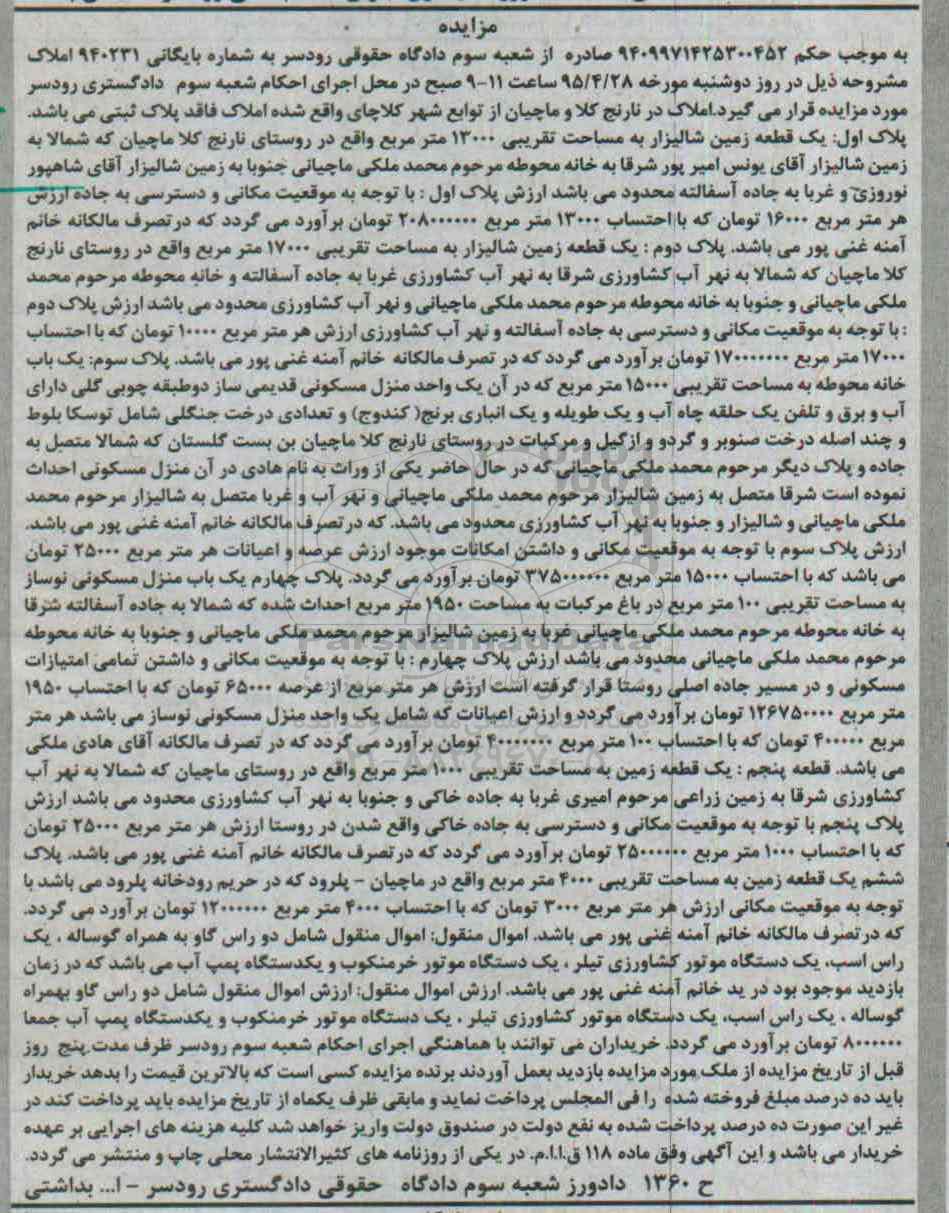 مزایده
به موجب حکم ۹۴۰۹۹۷۱۴۲۵۳۰۰۴۵۲ صادره از شعبه سوم دادگاه حقوقی رودسر به شماره بایگانی ۹۴۰۲۳۱ املاک
مشروحه ذیل در روز دوشنبه مورخه ۹۵/۴/۲۸ ساعت ۱۱-۹ صبح در محل اجرای احکام شعبه سوم دادگستری رودسر
مورد مزایده قرار می گیرد.املاک در نارنج کلا و ماچیان از توابع شهر کلاچای واقع شده املاک فاقد پلاک ثبتی می باشد.
پلاک اول: یک قطعه زمین شالیزار به مساحت تقریبی ۱۳۰۰۰ متر مربع واقع در روستای نارنج کلا ماچیان که شمالا به
زمین شالیزار آقای یونس امیر پور شرقا به خانه محوطه مرحوم محمد ملکی ماچیانی جنوبا به زمین شالیزار آقای شاهپور
نوروزی و غربا به جاده آسفالته محدود می باشد ارزش پلاک اول : با توجه به موقعیت مکانی و دسترسی به جاده ارزش
هر متر مربع ۱۶۰۰۰ تومان که با احتساب ۱۳۰۰۰ متر مربع ۲۰۸۰۰۰۰۰۰ تومان برآورد می گردد که درتصرف مالکانه خانم
آمنه غنی پور می باشد. پلاک دوم : یک قطعه زمین شالیزار به مساحت تقریبی ۱۷۰۰۰ متر مربع واقع در روستای نارنج
کلا ماچیان که شمالا به نهر آب کشاورزی شرقا به نهر آب کشاورزی غربا به جاده آسفالته و خانه محوطه مرحوم محمد
ملکی ماچیانی و جنوبا به خانه محوطه مرحوم محمد ملکی ماچیانی و نهر آب کشاورزی محدود می باشد ارزش پلاک دوم
: با توجه به موقعیت مکانی و دسترسی به جاده آسفالته و نهر آب کشاورزی ارزش هر متر مربع ۱۰۰۰۰ تومان که با احتساب
۱۷۰۰۰ متر مربع ۱۷۰۰۰۰۰۰۰ تومان برآورد می گردد که در تصرف مالکانه خانم آمنه غنی پور می باشد. پلاک سوم: یک باب
خانه محوطه به مساحت تقریبی ۱۵۰۰۰ متر مربع که در آن یک واحد منزل مسکونی قدیمی ساز دوطبقه چوبی گلی دارای
آب و برق و تلفن یک حلقه چاه آب و یک طویله و یک انباری برنج( کندوج) و تعدادی درخت جنگلی شامل توسکا بلوط
و چند اصله درخت صنوبر و گردو و ازگیل و مرکبات در روستای نارنج کلا ماچیان بن بست گلستان که شمالا متصل به
جاده و پلاک دیگر مرحوم محمد ملکی ماچیانی که در حال حاضر یکی از وراث به نام هادی در آن منزل مسکونی احداث
نموده است شرقا متصل به زمین شالیزار مرحوم محمد ملکی ماچیانی و نهر آب و غربا متصل به شالیزار مرحوم محمد
ملکی ماچیانی و شالیزار و جنوبا به نهر آب کشاورزی محدود می باشد. که درتصرف مالکانه خانم آمنه غنی پور می باشد.
ارزش پلاک سوم با توجه به موقعیت مکانی و داشتن امکانات موجود ارزش عرصه و اعیانات هر متر مربع ۲۵۰۰۰ تومان
می باشد که با احتساب ۱۵۰۰۰ متر مربع ۳۷۵۰۰۰۰۰۰ تومان برآورد می گردد. پلاک چهارم یک باب منزل مسکونی نوساز
به مساحت تقریبی ۱۰۰ متر مربع در باغ مرکبات به مساحت ۱۹۵۰ متر مربع احداث شده که شمالا به جاده آسفالته شرقا
به خانه محوطه مرحوم محمد ملکی ماچیانی غربا به زمین شالیزار مرحوم محمد ملکی ماچیانی و جنوبا به خانه محوطه
مرحوم محمد ملکی ماچیانی محدود می باشد ارزش پلاک چهارم : با توجه به موقعیت مکانی و داشتن تمامی امتیازات
مسکونی و در مسیر جاده اصلی روستا قرار گرفته است ارزش هر متر مربع از عرصه ۶۵۰۰۰ تومان که با احتساب ۱۹۵۰
متر مربع ۱۲۶۷۵۰۰۰۰ تومان برآورد می گردد و ارزش اعیانات که شامل یک واحد منزل مسکونی نوساز می باشد هر متر
مربع ۴۰۰۰۰۰ تومان که با احتساب ۱۰۰ متر مربع ۴۰۰۰۰۰۰۰ تومان برآورد می گردد که در تصرف مالکانه آقای هادی ملکی
می باشد. قطعه پنجم : یک قطعه زمین به مساحت تقریبی ۱۰۰۰ متر مربع واقع در روستای ماچیان که شمالا به نهر آب
کشاورزی شرقا به زمین زراعی مرحوم امیری غربا به جاده خاکی و جنوبا به نهر آب کشاورزی محدود می باشد ارزش
پلاک پنجم با توجه به موقعیت مکانی و دسترسی به جاده خاکی واقع شدن در روستا ارزش هر متر مربع ۲۵۰۰۰ تومان
که با احتساب ۱۰۰۰ متر مربع ۲۵۰۰۰۰۰۰ تومان برآورد می گردد که درتصرف مالکانه خانم آمنه غنی پور می باشد. پلاک
ششم یک قطعه زمین به مساحت تقریبی ۴۰۰۰ متر مربع واقع در ماچیان - پلرود که در حریم رودخانه پلرود می باشد با
توجه به موقعیت مکانی ارزش هر متر مربع ۳۰۰۰ تومان که با احتساب ۴۰۰۰ متر مربع ۱۲۰۰۰۰۰۰ تومان برآورد می گردد.
که درتصرف مالکانه خانم آمنه غنی پور می باشد. اموال منقول: اموال منقول شامل دو راس گاو به همراه گوساله ، یک
راس اسب، یک دستگاه موتور کشاورزی تیلر ، یک دستگاه موتور خرمنکوب و یکدستگاه پمپ آب می باشد که در زمان
بازدید موجود بود در ید خانم آمنه غنی پور می باشد. ارزش اموال منقول: ارزش اموال منقول شامل دو راس گاو بهمراه
گوساله ، یک راس اسب، یک دستگاه موتور کشاورزی تیلر ، یک دستگاه موتور خرمنکوب و یکدستگاه پمپ آب جمعا
۸۰۰۰۰۰۰ تومان برآورد می گردد. خریداران می توانند با هماهنگی اجرای احکام شعبه سوم رودسر ظرف مدت پنج روز
قبل از تاریخ مزایده از ملک مورد مزایده بازدید بعمل آوردند برنده مزایده کسی است که بالاترین قیمت را بدهد خریدار
باید ده درصد مبلغ فروخته شده را فی المجلس پرداخت نماید و مابقی ظرف یکماه از تاریخ مزایده باید پرداخت کند در
غیر این صورت ده درصد پرداخت شده به نفع دولت در صندوق دولت واریز خواهد شد کلیه هزینه های اجرایی بر عهده
خریدار می باشد و این آگهی وفق ماده ۱۱۸ ق.ا.ا.م. در یکی از روزنامه های کثیرالانتشار محلی چاپ و منتشر می گردد.
ح ۱۳۶۰ دادورز شعبه سوم دادگاه حقوقی دادگستری رودسر - ا... بداشتی
ParsNamadData